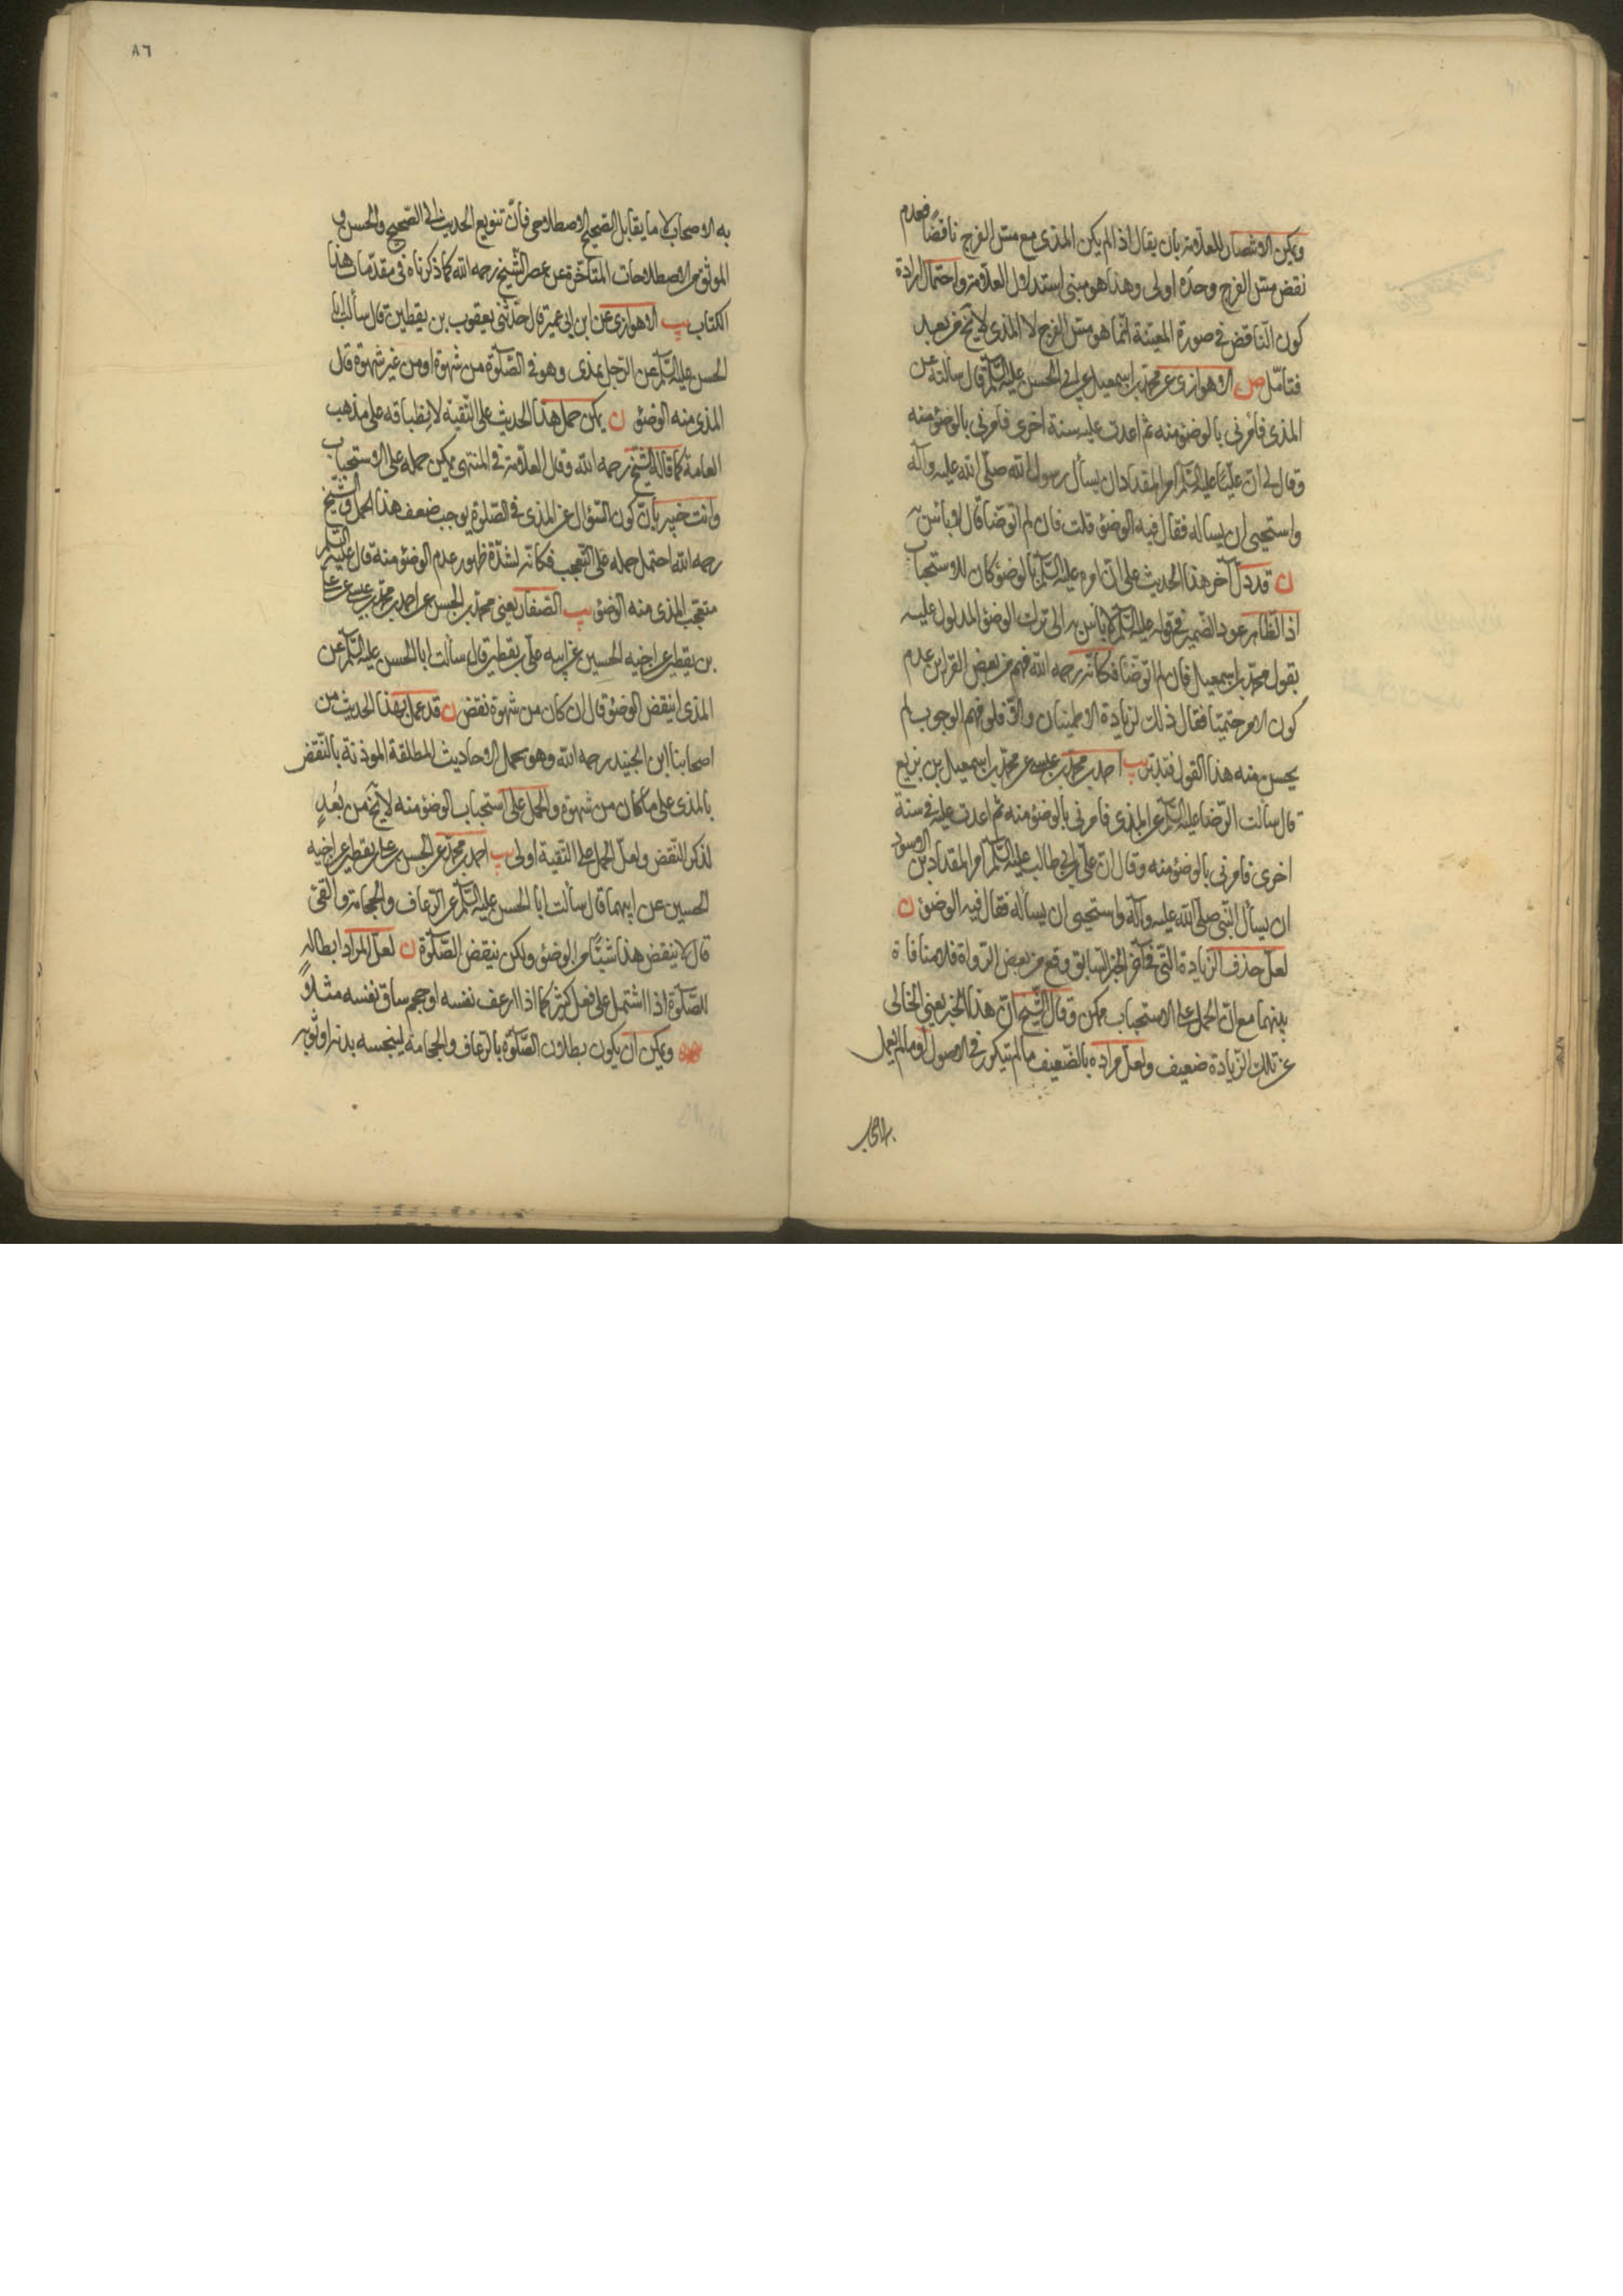 ويمكن الانتصار للعلامة بان يقال اذا لم يكن المذى مع مس الفرج ناقضًا فعدم
نقض مس الفرج وحده اولى وهذا هو مبنى استدلال العلامة واحتمال ارادة
كون الناقض فى صورة المعية انما هو مس الفرج لا المذى لا يخ من بعد
فتامّل ص الاهوازى عن محمد بن اسمعيل عن ابى الحسن عليه السلم قال سألته عن
المذى فامرنى بالوضوء منه ثم اعدت عليه سنة اخرى فامرنى بالوضوء منه
وقال لى ان عليّا عليه السلم امر المقداد ان يسأل رسول الله صلى الله عليه وآله
واستحيى ان يساله فقال فيه الوضوء قلت فان لم اتوضا قال لا باس به
ن قد دلّ آخر هذا الحديث على ان امره عليه السلم بالوضوء كان للاستحباب
اذ الظاهر عود الضمير فى قوله عليه السلم لا باس به الى ترك الوضوء المدلول عليه
بقول محمد بن اسمعيل فان لم اتوضا فكانه رحمه الله فهم من بعض القراين عدم
كون الامر حتميّا فقال ذلك لزيادة الاطمينان والا فلو فهم الوجوب لم
يحسن منه هذا القول فتدبّر يب احمد بن محمد بن عيسى عن محمد بن اسمعيل بن بزيع
قال سألت الرّضا عليه السلم عن المذى فامرنى بالوضوء منه ثم اعدت عليه فى سنة
اخرى فامرنى بالوضوء منه وقال ان علىّ بن ابى طالب عليه السلم امر المقداد بن الاسود
ان يسأل النبى صلى الله عليه وآله واستحيى ان يسأله فقال فيه الوضوء ن
لعلّ حذف الزيادة التى فى آخر الخبر السابق وقع من بعض الرواة فلا منافاة
بينهما مع ان الحمل على الاستحباب ممكن وقال الشيخ ان هذا الخبر يعنى الخالى
عن تلك الزيادة ضعيف ولعل مراده بالضعيف ما لم يتكرر فى الاصول او ما لم يعمل
به الاصحاب
٨٦
به الاصحاب لا ما يقابل الصحيح الاصطلاحى فانّ تنويع الحديث الى الصّحيح والحسن و
الموثق من الاصطلاحات المتاخرة عن عصر الشيخ رحمه الله كما ذكرناه فى مقدّمات هذا
الكتاب يب الاهوازى عن ابن ابى عمير قال حدّثنى يعقوب بن يقطين قال سألت ابا
الحسن عليه السلم عن الرّجل يمذى وهو فى الصّلوة من شهوة او من غير شهوة قال
المذى منه الوضوء ن يمكن حمل هذا الحديث على التّقية لانطباقه على مذهب
العامة كما قاله الشيخ رحمه الله وقال العلامة فى المنتهى يمكن حمله على الاستحباب
وانت خبير بانّ كون السّؤال عن المذى فى الصّلوة يوجب ضعف هذا الحمل والشيخ
رحمه الله احتمل حمله على التّعجب فكانه لشدّة ظهور عدم الوضوء منه قال عليه السلم
متعجّبا المذى منه الوضوء يب الصّفار يعنى محمد بن الحسن عن احمد بن محمد بن عيسى عن على
بن يقطين عن اخيه الحسين عن ابيه على بن يقطين قال سألت ابا الحسن عليه السلم عن
المذى اينقض الوضوء قال ان كان من شهوة نقض ن قد عمل بهذا الحديث من
اصحابنا ابن الجنيد رحمه الله وهو يحمل الاحاديث المطلقة الموذنة بالنّقض
بالمذى على ما كان من شهوة والحمل على استحباب الوضوء منه لا يخ من بُعدٍ
لذكر النقض ولعلّ الحمل على التّقية اولى يب احمد بن محمد عن الحسن بن على بن يقطين عن اخيه
الحسين عن ابيهما قال سألت ابا الحسن عليه السلم عن الرّعاف والحجامة والقئ
قال لا ينقض هذا شيئًا من الوضوء ولكن ينقض الصّلوة ن لعلّ المراد ابطاله
للصّلوة اذا اشتمل على فعل كثير كما اذا ارعف نفسه او حجم ساق نفسه مثلًا
ويمكن ان يكون بطلان الصّلوة بالرّعاف والحجامة لينجسه بدنه او ثوبه